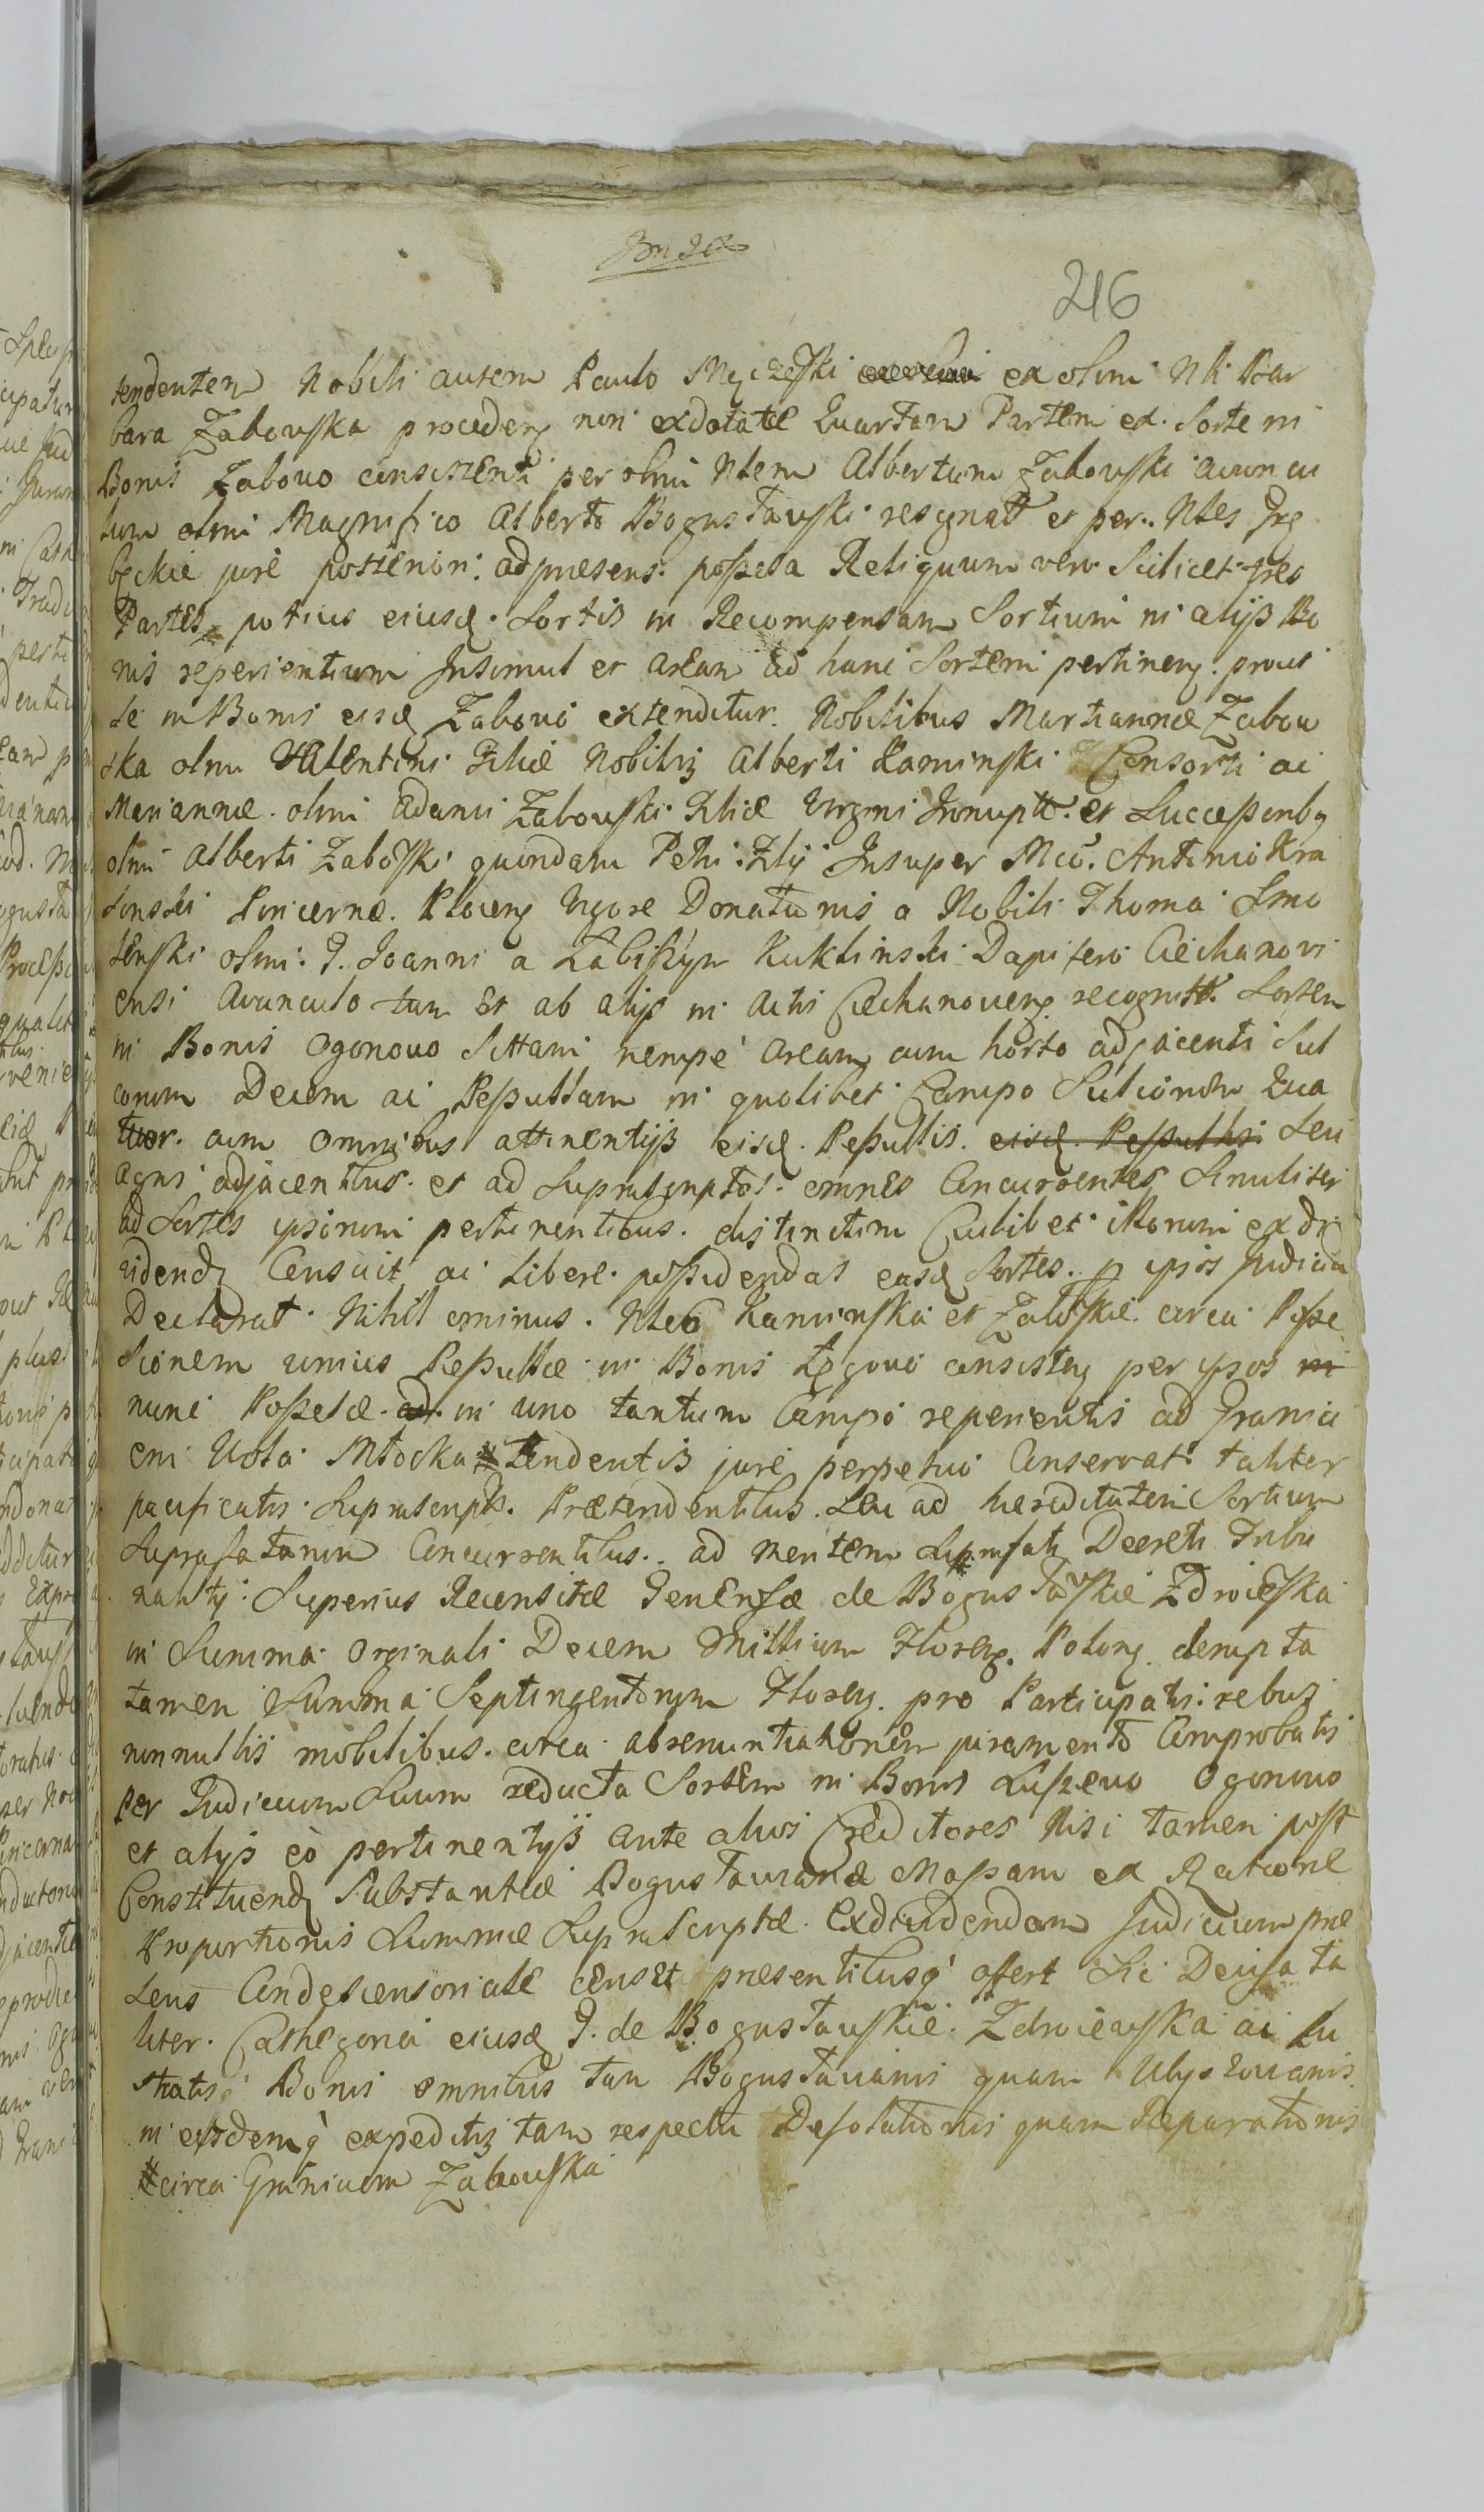 216
tendentem Nobili autem Paulo Mężeński ex olim Nli Bar
bara Zabowska proceden non exdotatæ Quartam Partem ex Sorte in
Bonis Zabowo consistenti per olim Nlem Albertum Zabowski avuncu
lum olim Magnifico Alberto Bogusławski resignatt et per Nles
jure posteriori ad præsens possessa Reliquum vero scilicet tres
Partes potius eiusd. Sortis in Recompensam Sortium in alijs Bo
nis reperientium Insimul et aream ad hanc Sortem pertinen. prout
se in Bonis eisd Zabowo extenditur. Nobilibus Martiannæ Zabow
ska olim Valentini Filiæ Nobilis Alberti Kaminski Consorti ac
Mariannæ olim Adami Zabowski Filiæ Virgini Innuptæ et Successoribq
olim Alberti Zaboski quondam Petri Filij Insuper Mco. Antonio Kra
sinski Pincernæ Plocen Vigore Donationis a Nobili Thoma Smo
leński olim G. Joanni a Łabiszyn Kuklinski Dapifero Ciechanovi
ensi Avunculo tum et ab alijs in Actis Ciechanoven recognitt. Sortem
in Bonis Ogonowo Sittam nempe Aream cum horto adjacenti Sul
corum Decem ac Resullam in quolibet Campo Sulcorum Qua
tuor cum omnibus attinentijs eisd. Resullis eisd. Resullis Seu
Agris adjacentibus et ad suprascriptos omnes Concurrentes Similiter
ad Sortes ipsorum pertinentibus distinctim Cuilibet illorum exdi
videnda Censuit ac libere possidendas easd Sortes p ipsos Judicium
Declarat. Nihilominus Nles Kaminska et Zaboskie circa Posse
sionem unius Resullæ in Bonis consisten per ipsos in
nunc Possessæ in uno tantum Campo reperientis ad Granici
em Vola Młocka # tendentis jure perpetuo Conservat taliter
pacificatis Suprascriptis Prætendentibus Seu ad hæreditatem Sortium
Suprafatarum Concurrentibus ad mentem Suprafati Decreti Tribu
nalitij Superius Recensitæ Generosæ de Bogusławskie Zdroieska
in Summa Orginali Decem Millium Floren. Polon. dempta
tamen Summa Septingentorum Floren. pro Participatis rebus
nonnullis mobilibus circa abrenuntiationem juramento Comprobatis
per Judicium Suum reducta Sortem in Bonis Luszewo Ogonowo
et alijs eò pertinentijs ante alios Creditores Nisi tamen post
Constituend Substantiæ Bogusławianæ Massam ex Ratione
Proportionis Summæ Suprascriptæ Exdividendam Judicium præ
sens Condescensoriale censet præsentibusq offert Sic Decisa ta
liter Cathegoria eiusd G. de Bogusławskie Zdroiewska ac lu
stratis Bonis omnibus tam Bogusławianis quam
in eisdemq expeditis tam respectu Desolationis quam Reparationis
# circa Graniciem Zabowska